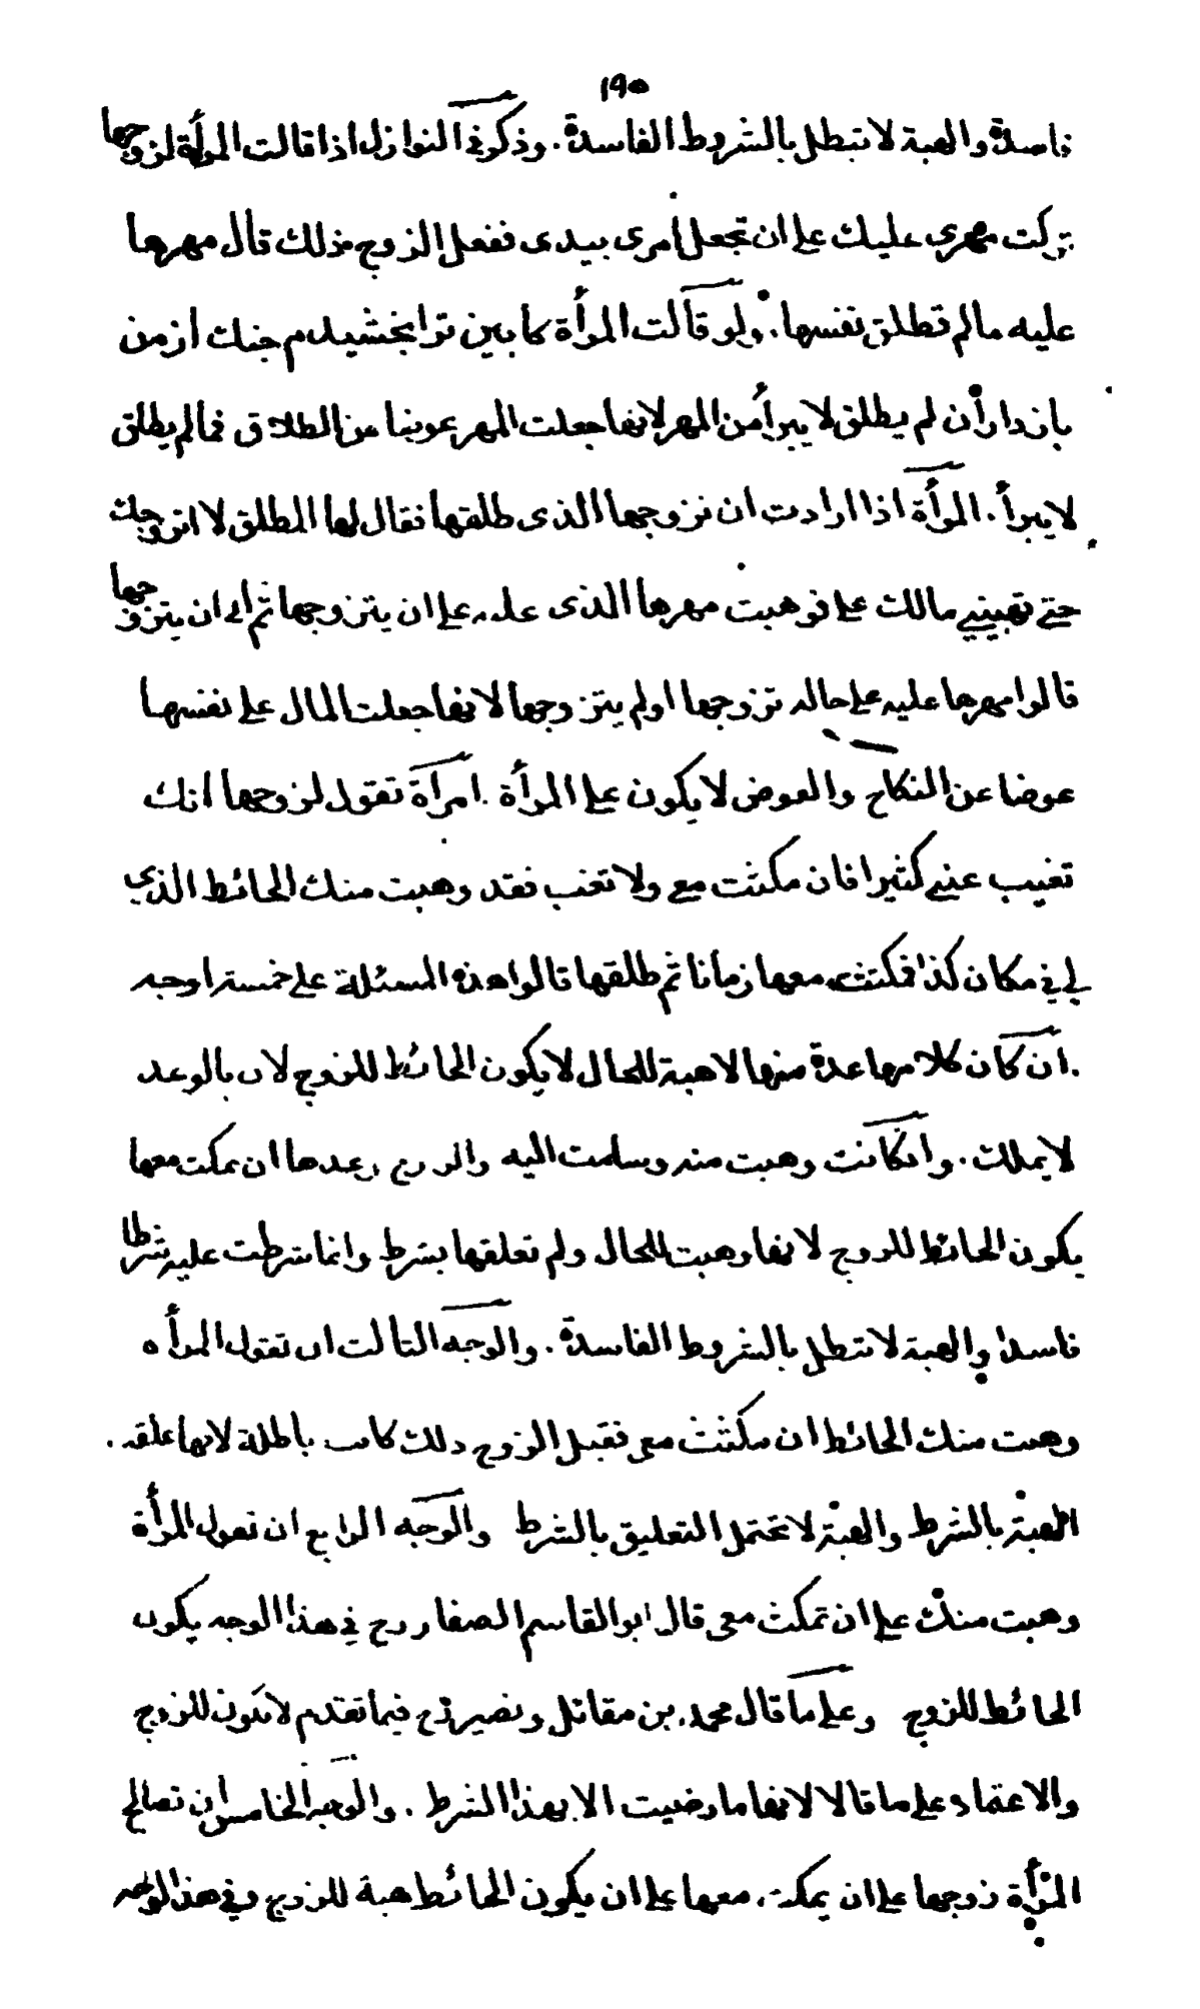 ١٩٥
فاسدة والهبة لا تبطل بالشروط الفاسدة . وذكر في النوازل اذا قالت المرأة لزوجها
تركت مهرى عليك على ان تجعل امرى بيدى ففعل الزوج ذلك قال مهرها
عليه مالم تطلق نفسها . ولو قالت المرأة كابين ترا بخشيدم جنك از من
باز دار أن لم يطلق لا يبرأ من المهر لانها جعلت المهر عوضا عن الطلاق فمالم يطلق
لا يبرأ . المرأة اذا ارادت ان تزوجها الذى طلقها فقال لها المطلق لا اتزوجك
حتى تهبيني مالك على فوهبت مهرها الذى عليه على ان يتزوجها ثم ابى ان يتزوجها
قالوا مهرها عليه على حاله تزوجها اولم يتزوجها لانها جعلت المال على نفسها
عوضا عن النكاح والعوض لا يكون على المرأة . امرأة تقول لزوجها انك
تغيب عنى كثيرا فان مكثت معى ولا تغب فقد وهبت منك الحائط الذي
لي في مكان كذا فمكث معها زمانا ثم طلقها قالوا هذه المسئلة على خمسة اوجه
. ان كان كلامها عدة منها لا هبة للحال لا يكون الحائط للزوج لان بالوعد
لا يملك . وان كانت وهبت منه وسلمت اليه والزوج وعدها ان يمكث معها
يكون الحائط للزوج لانها وهبت للحال ولم تعلقها بشرط وانما شرطت عليه شرطا
فاسدا والهبة لا تبطل بالشروط الفاسدة . والوجه الثالث ان تقول المرأة
وهبت منك الحائط ان مكثت معى فقبل الزوج ذلك كانت باطلة لانها علقت .
الهبة بالشرط والهبة لا تحتمل التعليق بالشرط والوجه الرابع ان تقول المرأة
وهبت منك على ان تمكث معى قال ابو القاسم الصفار رح في هذا الوجه يكون
الحائط للزوج وعلى ما قال محمد بن مقاتل ونصير رح فيما تقدم لا يكون للزوج
والاعتماد على ما قالا لانها ما رضيت الا بهذا الشرط . والوجه الخامس ان تصالح
المرأة زوجها على ان يمكث معها على ان يكون الحائط هبة للزوج وفي هذا الوجه